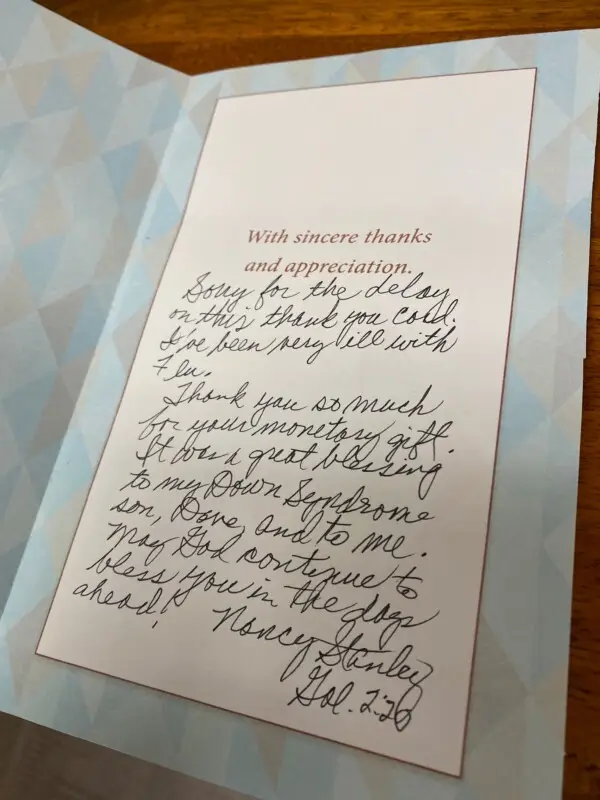 With sincere thanks
and appreciation.
Sorry for the delay
on this thank you card.
I've been very ill with
Flu.
Thank you so much
for your monetary gift.
It was a great blessing
to my Down Syndrome
son, Dave, and to me.
May God continue to
bless you in the days
ahead!
Nancy Stanley
Gal. 2:20